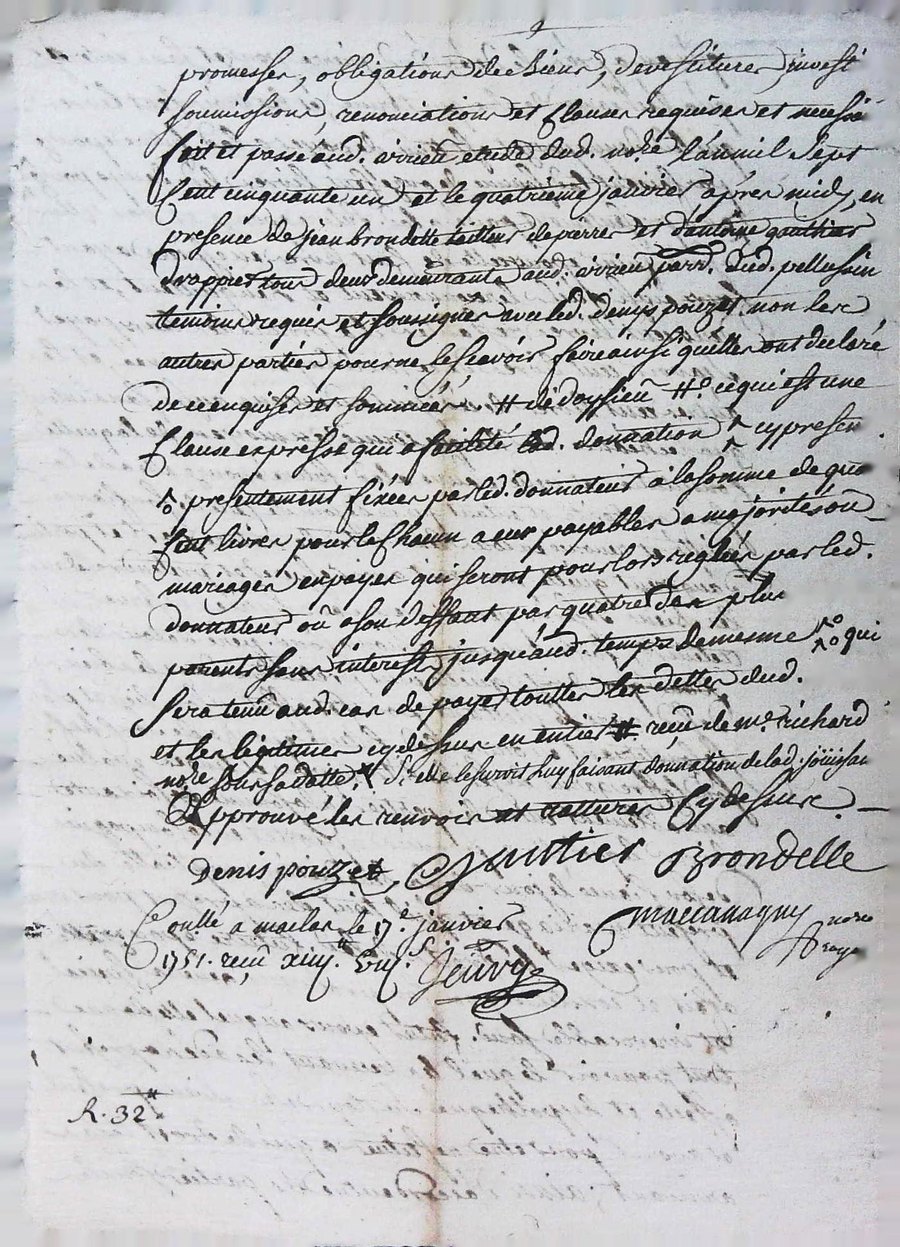 promesses, obligations de biens, devestitures, invesi
soumissions, renonciations et clauses requises et necessé
fait et passé aud. virieu etude dud. nore. l'an mil sept
cent cinquante un et le quatrieme janvier, apres midy, en
presence de jean brondelle tailleur de pierres et d'antoine gauthier
drappier tous deux demeurants aud. virieu parr. dud. pellussin
temoins requis et soussignés avec led. denis pouzet non les
autres parties pour ne le scavoir faire ainsi qu'elles ont declaré
de ce enquises et sommées, # de doyzieu #o. ce qui est une
clause expresse qui a facilité lad. donnation cy presen
presentement fixées par led. donnateur à la somme de qua
cent livres pour le chacun a eux payables a majorité ou
mariages en payes qui seront pour lors reglées par led.
donnateur où a son deffaut par quatre des plus
parents sans interest jusqu'aud. temps de mesme qui
sera tenu aud. cas de payer touttes les dettes dud.
et les legitimes cy dessus en entier # reçu de me. richard
nore. sous sa datte, S. elle le survit luy faisant donnation de lad. joüissan
Approuvé les renvois et rattures cy dessus.
denis pouzet, Gautier Brondelle
Conllé a maclas le 17e. janvier
1751. reçu
nore
royal
R. 32#